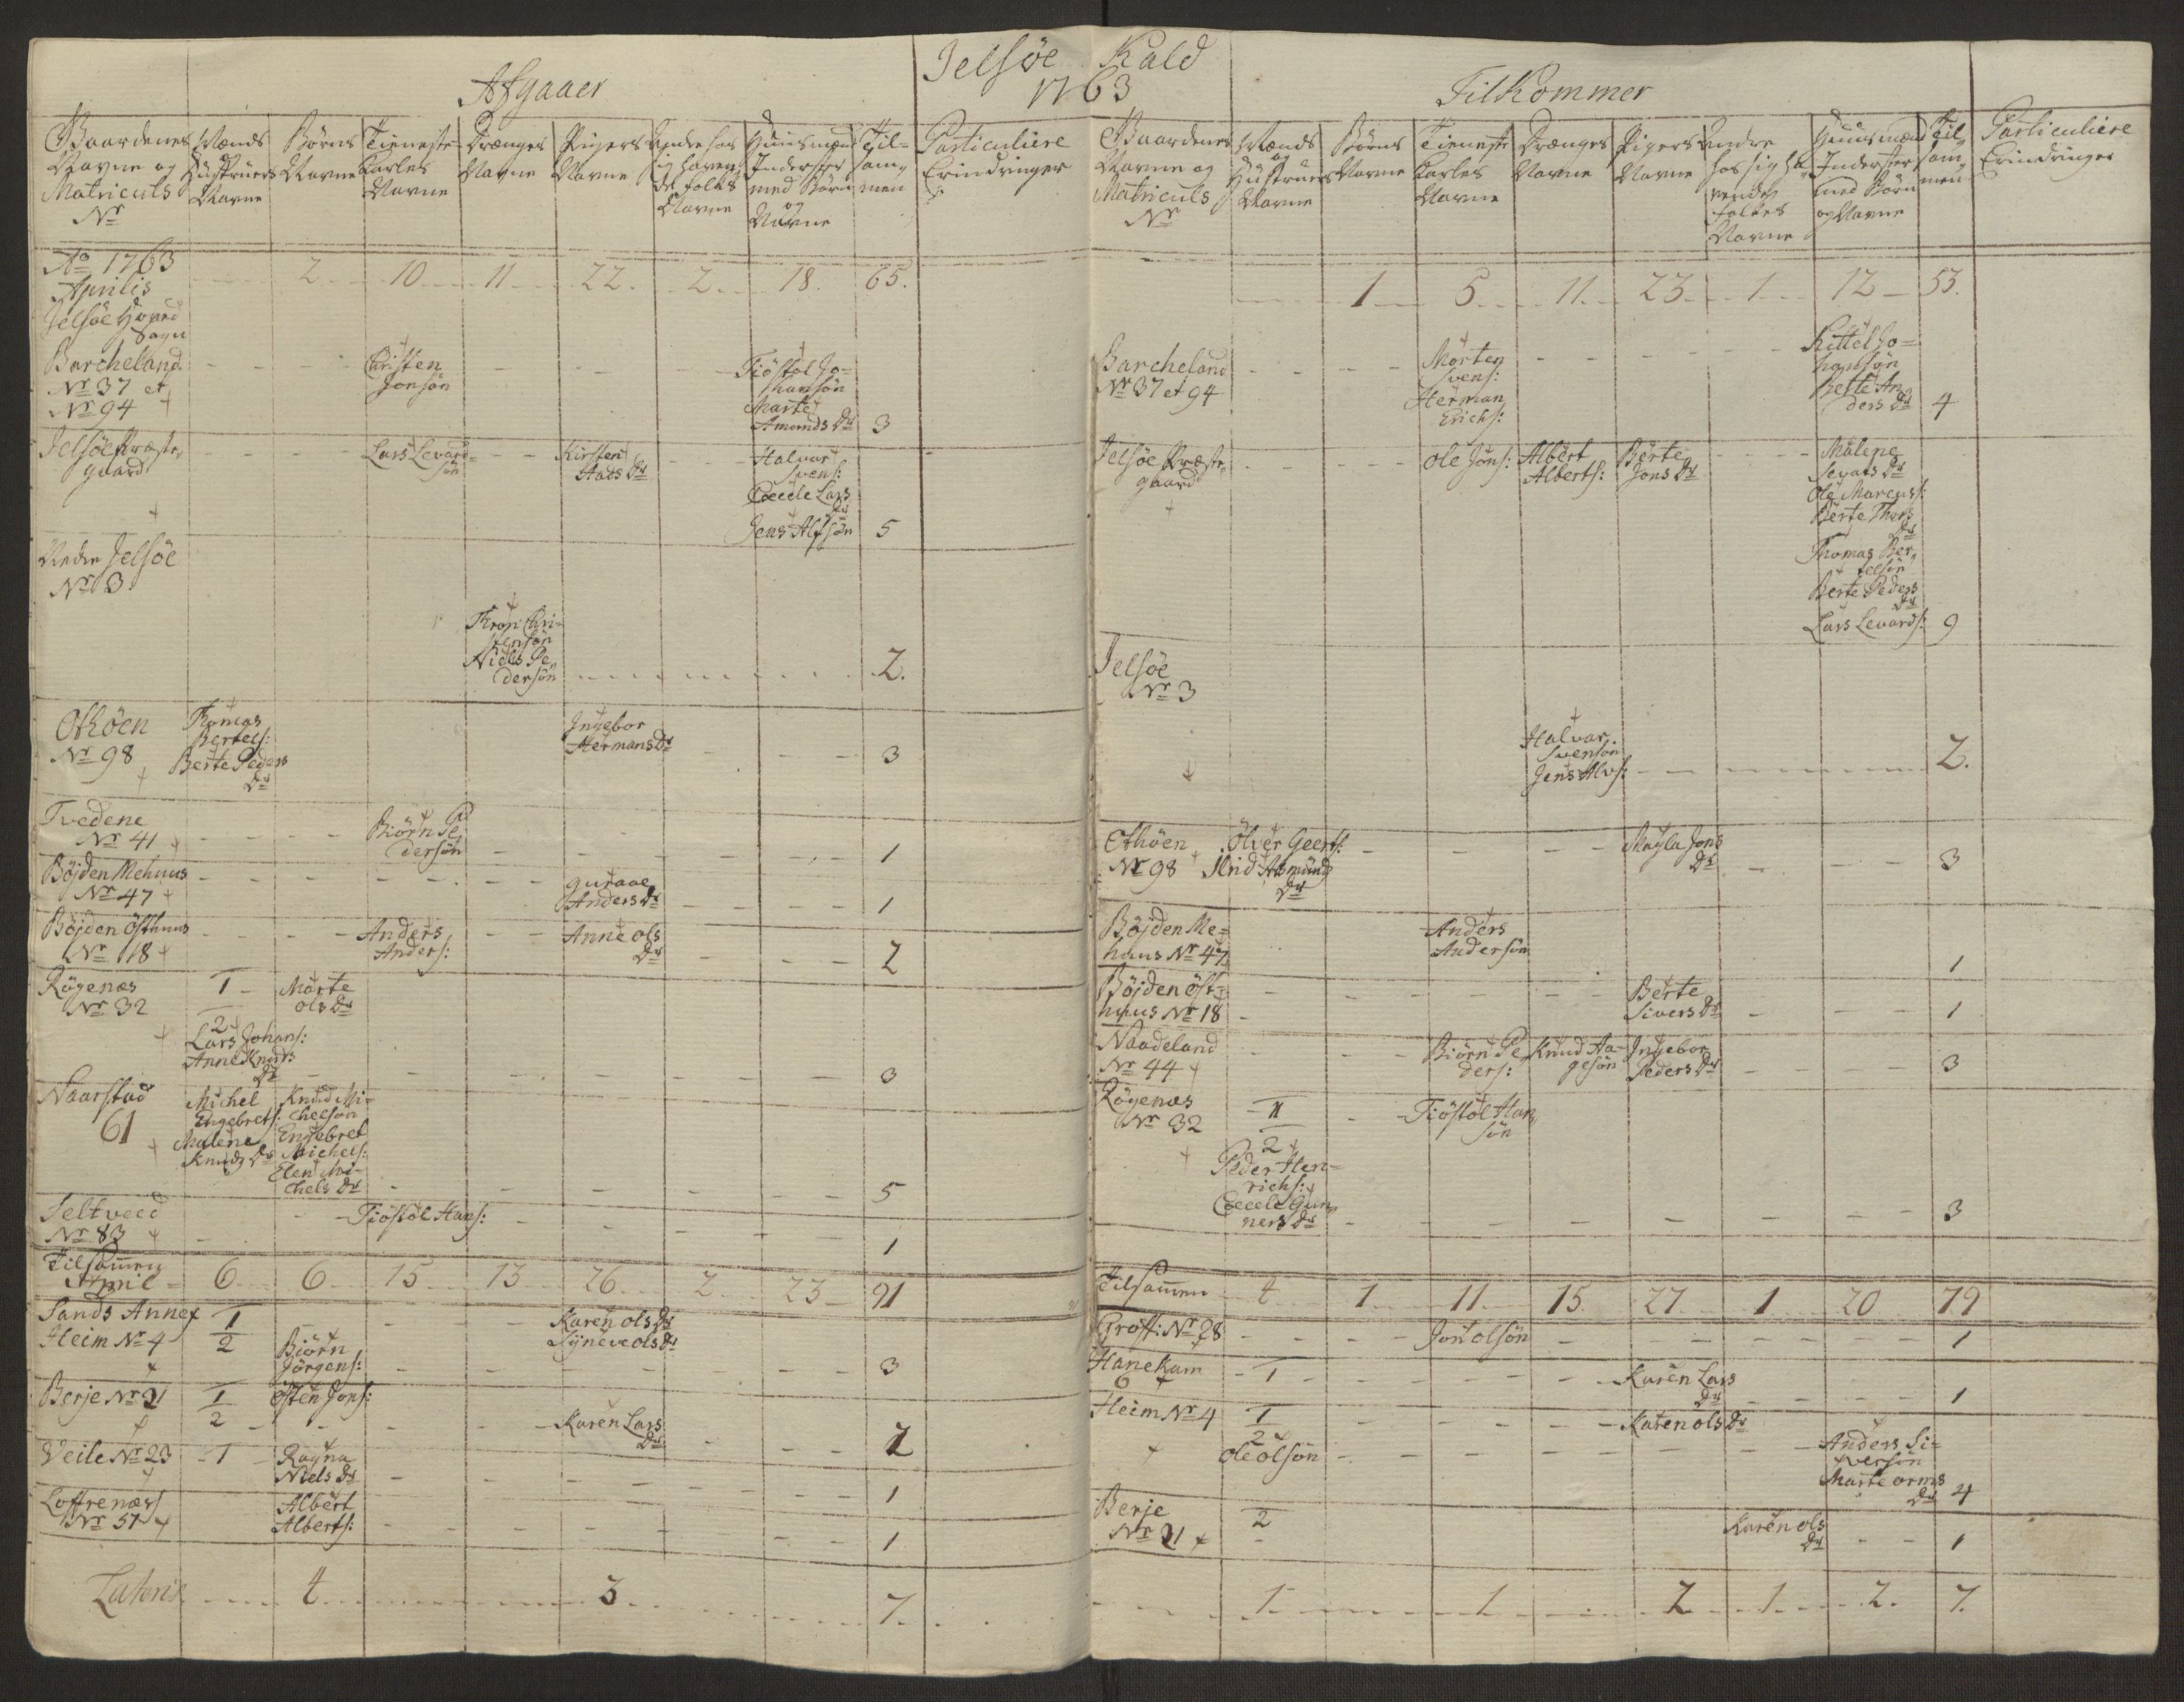 Jelsöe Kald
1763
Afgaaer
Gaardenes Navne og Matriculs No
Mænds og Hustruers Navne
Börns Navne
Tieneste Karles Navne
Drænges Navne
Pigers Navne
Andre hos sig havende folks Navne
Huusmænd Inderster med Börn og Navne
Tilsammen
Particuliere Erindringer
Ao 1763
Aprilis
Jelsöe Hoved Sogn
2 10 11 22 2 18 65.
Barcheland
No 37 et
No 94
Christen
Jonsön
Tiöstol Jo=
hansön
Marte
Amunds Dr 3
Jelsöe Præste
gaard
Lars Levard=
sön
Kirsten
Mads Dr
Halvar
Svens:
Ceecele Lars
Dr
Jens Alfsön 5
Nedre Jelsöe
No 3
Thron Chri=
stensön
Niels Pe
dersön 2.
Othöen
No 98
Thomas
Bertels:
Berte Peders
Dr
Ingebor
Hermans Dr 3
Tvedene
No 41
Biörn Pe
dersön 1
Böjden Mehuus
No 47
Guraae
Anders Dr 1
Böjden Östhuus
No 118
Anders
Anders:
Anne Ols
Dr 2
Rögenæs
No 32
1
2
Lars Johans:
Anne Knuds
Dr
Marte
Ols Dr 3
Naarstad
61
Michel
Engebrets:
Malene
Knuds Dr
Knud Mi=
chelsön
Engebret
Michels:
Elen Mi=
chels Dr 5
Seltveed
No 83
Tiöstöl Hans: 1
Tilsammen
April 6 6 15 13 26 2 23 91
Sands Annex
Heim No 4
1
2
Biörn
Jörgens:
Karen Ols Dr
Syneve Ols Dr 3
Berje No 21
1
2
Osten Jons:
Karen Lars
Dr 2
Veile No 23 1
Ragna
Niels Dr 1
Loffrenæss
No 51
Albert
Alberts: 1
Lateris 4 3 7.
Tilkommer
Gaardenes Navne og Matriculs No
Mænds og Hustruers Navne
Börns Navne
Tieneste Karles Navne
Drænges Navne
Pigers Navne
Andre hos sig havende folkes Navne
Huusmænd Inderster med Börn og Navne
Tilsammen
Particuliere Erindringer
1 5 11 23 1 12 53.
Barcheland
No 37 et 94
Morten
Svens:
Herman
Erichs:
Kittel Jo=
hansön
Berte An
ders Dr 4
Jelsöe Præste
gaard
Ole Jons:
Albert
Alberts:
Berte
Jons Dr
Malene
Sevats Dr
Ole Marcuss:
Berte Thors
Dr
Thomas Ber
telsön
Berte Peders
Dr
Lars Levards: 9
Jelsöe
No 3
Halvar
Svensön
Jens Alvs: 2.
Othöen
No 98
Olver Geerts:
Anid Asmunds
Dr
Magla Jons
Dr 3
Böjden Me=
huus No 47
Anders
Andersön 1
Böjden Öst=
huus No 18
Berte
Sivers Dr 1
Naadeland
No 44
Biörn Pe
ders:
Knud Aa=
gesön
Ingebor
Peders Dr 3
Rögenæs
No 32
1
2
Peder Hen=
richs:
Ceecele Gun
ners Dr
Tiöstöl Han
sön 3
Tilsammen 4 1 11 15 27 1 20 79
Groff: No 28
Jon Olsön 1
Hanekam
6 1
Karen Lars
Dr 1
Heim No 4
1
2
Ole Olsön
Karen Ols Dr
Anders Si=
versön
Marte Orms
Dr 4
Berje
No 21
2
Karen Ols
Dr 1
1 1 2 1 2. 7.